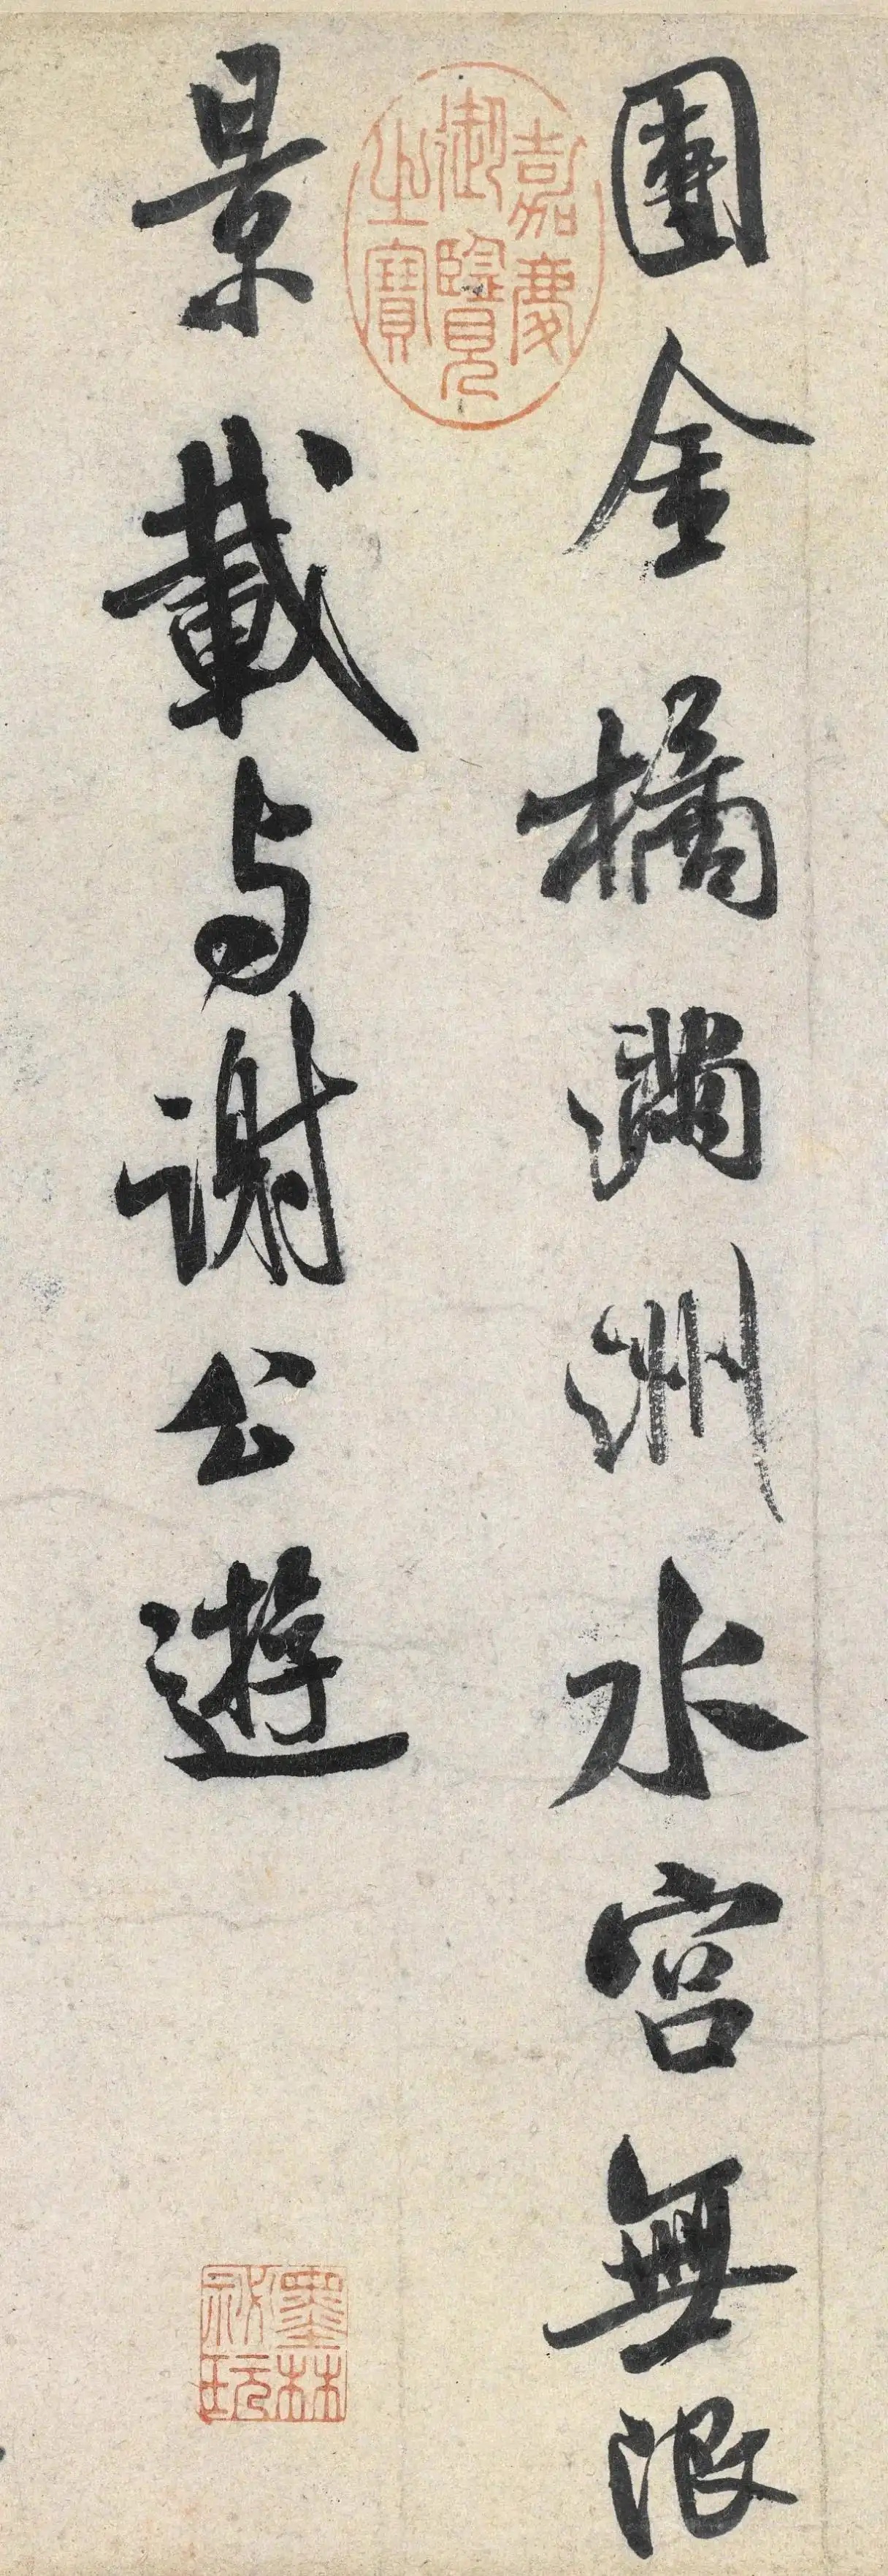 團金橘滿洲水宮無限
景載与謝公遊
嘉慶御覽之寶
墨林祕玩